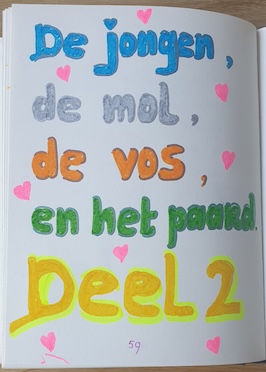 De jongen,
de mol,
de vos,
en het paard.
Deel 2
59